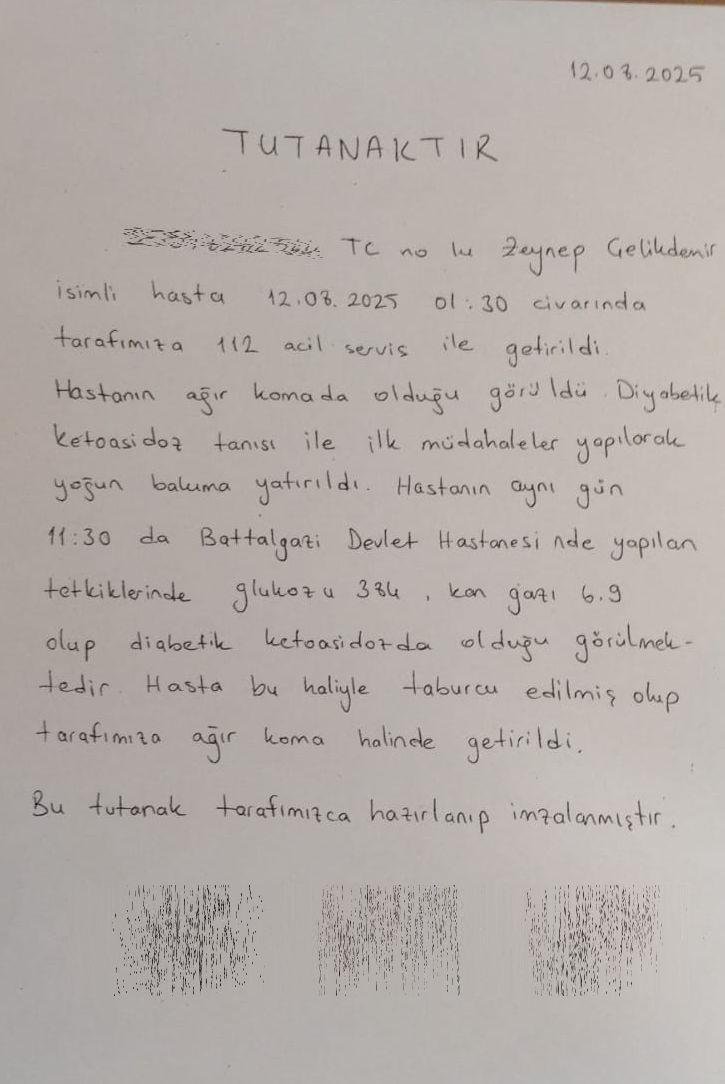 12.08.2025
TUTANAKTIR
TC no lu Zeynep Gelikdemir
isimli hasta 12.08.2025 01:30 civarında
tarafımıza 112 acil servis ile getirildi.
Hastanın ağır komada olduğu görüldü. Diyabetik
ketoasidoz tanısı ile ilk müdahaleler yapılarak
yoğun bakıma yatırıldı. Hastanın aynı gün
11:30 da Battalgazi Devlet Hastanesi nde yapılan
tetkiklerinde glukozu 384, kan gazı 6.9
olup diabetik ketoasidozda olduğu görülmek-
tedir. Hasta bu haliyle taburcu edilmiş olup
tarafımıza ağır koma halinde getirildi.
Bu tutanak tarafımızca hazırlanıp imzalanmıştır.